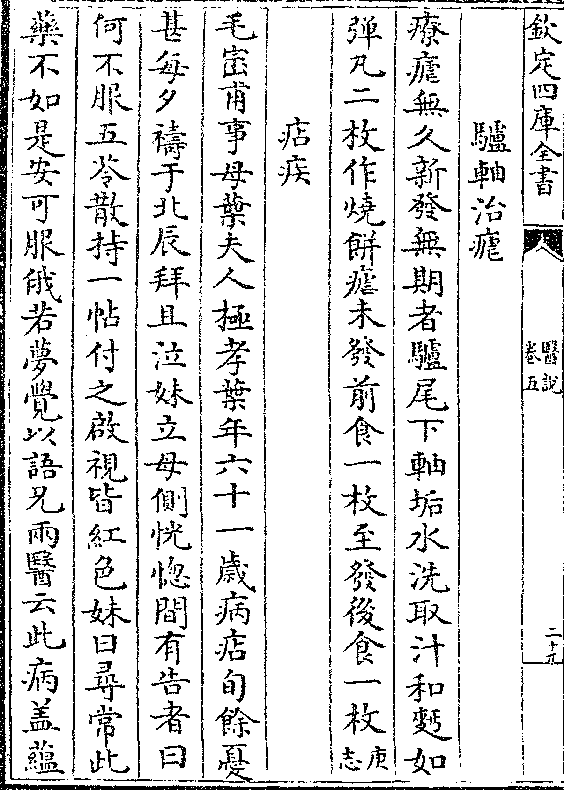 欽定四庫全書
醫說
卷五
二十九
驢軸治瘧
療瘧無久新發無期者驢尾下軸垢水洗取汁和麪如
彈丸二枚作燒餅瘧未發前食一枚至發後食一枚庚志
痁疾
毛崈甫事母葉夫人極孝葉年六十一歲病痁旬餘憂
甚每夕禱于北辰拜且泣妹立母側恍惚間有告者曰
何不服五苓散持一帖付之啟視皆紅色妹曰尋常此
藥不如是安可服俄若夢覺以語兄兩醫云此病盖蘊